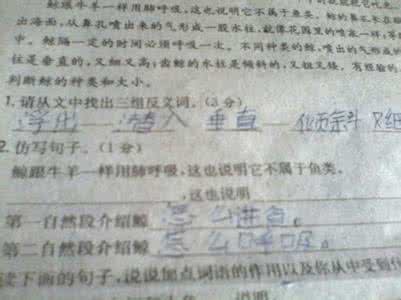 鲸跟牛羊一样用肺呼吸,这也说明它不属于鱼类。鲸的鼻孔长在
出海面,从鼻孔喷出来的气形成一股水柱,就像花园里的喷泉一样,等
中。鲸隔一定的时间必须呼吸一次。不同种类的鲸,喷出的气形成的
柱是垂直的,又细又高;齿鲸的水柱是倾斜的,又粗又矮。有经验的
判断鲸的种类和大小。
1. 请从文中找出三组反义词。(3分)
浮出 潜入 垂直 倾斜 又细
2. 仿写句子。(1分)
鲸跟牛羊一样用肺呼吸,这也说明它不属于鱼类。
,这也说明
第一自然段介绍鲸 怎么进食。
第二自然段介绍鲸 怎么呼吸。
读下面的句子,说说加点词语的作用以及你从中受到什